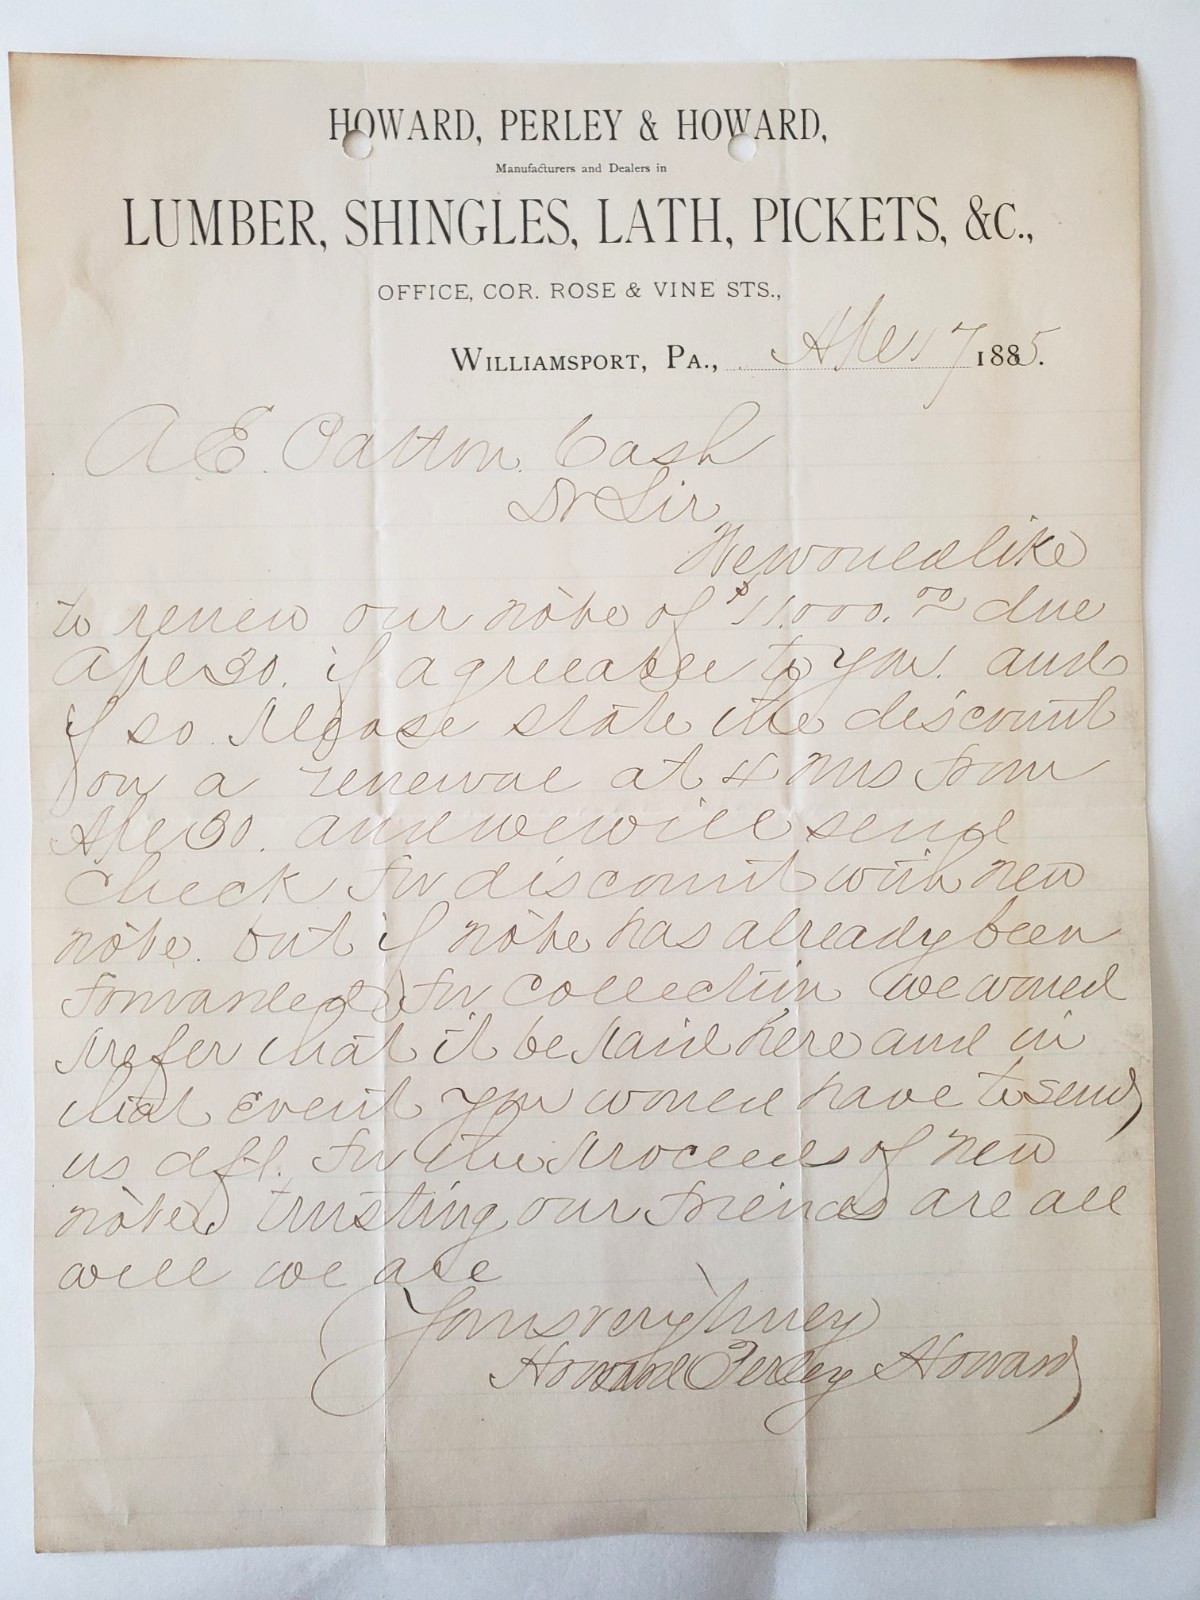 HOWARD, PERLEY & HOWARD,
Manufacturers and Dealers in
LUMBER, SHINGLES, LATH, PICKETS, &C.,
OFFICE, COR. ROSE & VINE STS.,
WILLIAMSPORT, PA., Apl 17 1885.
A E. Patton. Cash
Dr Sir
We would like
to renew our note of $11.000.00 due
Apl 30. if agreeable to you. and
if so please state the discount
on a renewal at 4 mos from
Apl 30. and we will send
check for discount with new
note. but if note has already been
forwarded for collection we would
prefer that it be paid here and in
that event you would have to send
us dft. for the proceeds of new
note, trusting our friends are all
well we are
Yours very truly
Howard Perley & Howard